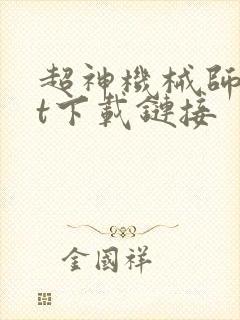 超神機械師
t下載鏈接
金國祥